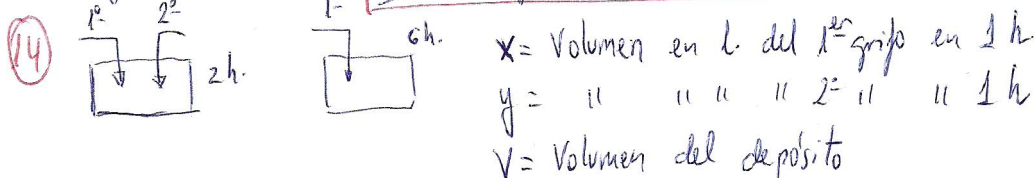 14
1º 2º
2h.
1º
6h.
x = Volumen en l. del 1er grifo en 1 h.
y = " " " " 2º " " 1 h
V = Volumen del depósito